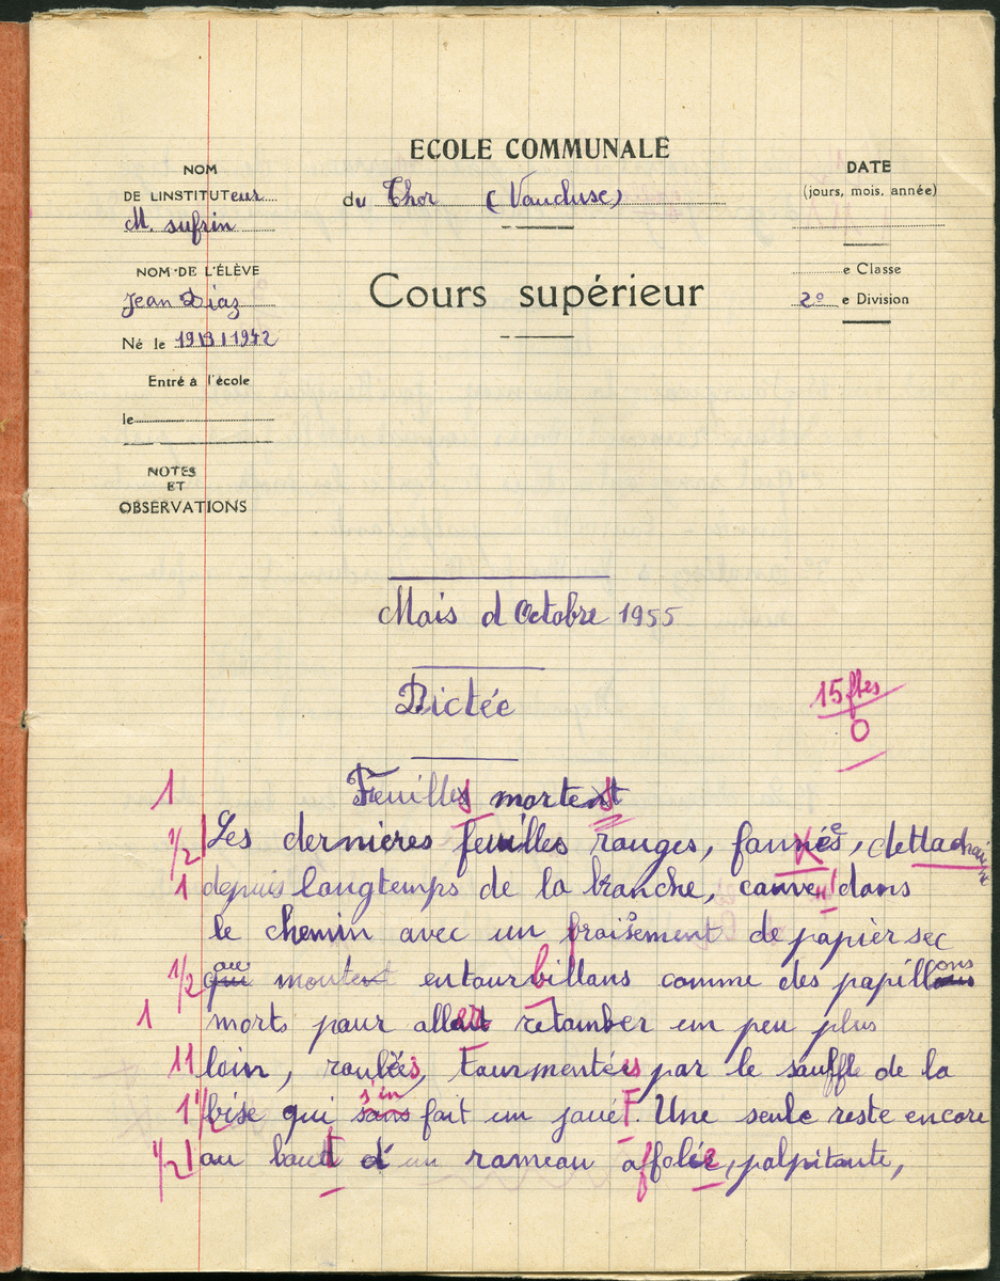 ECOLE COMMUNALE
du Thor (Vaucluse)
NOM
DE L'INSTITUTeur
M. sufrin
NOM DE L'ÉLÈVE
Jean Diaz
Né le 19 1 1942
Entré à l'école
le
NOTES
ET
OBSERVATIONS
DATE
(jours, mois, année)
e Classe
2º e Division
Cours supérieur
Mois d Octobre 1955
Dictée
15 ftes
0
1 Feuilles mortes
1/2 Les dernières feuilles rouges, fanées, dettachaient
1 depuis longtemps de la branche, couvent dans
le chemin avec un froissement de papier sec
1/2 qui montent entourbillons comme des papillons
1 morts pour aller retomber un peu plus
11 loin, roulées, tourmentées par le souffle de la
1 1/2 bise qui s'en fait un jouet. Une seule reste encore
1/2 1 au bout d'un rameau affolée, palpitante,